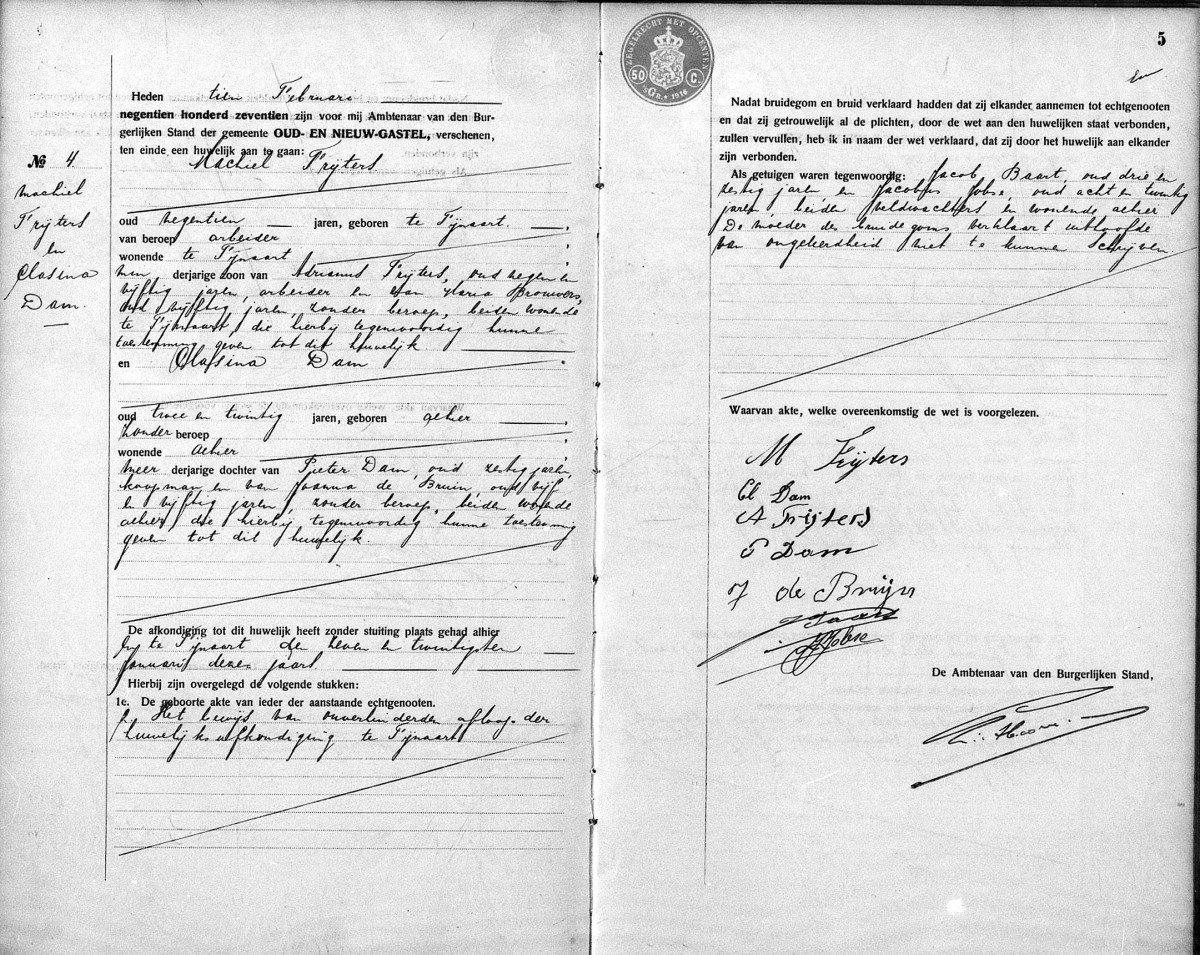 Heden tien Februari
negentien honderd zeventien zijn voor mij Ambtenaar van den Bur-
gerlijken Stand der gemeente OUD- EN NIEUW-GASTEL, verschenen,
ten einde een huwelijk aan te gaan:
Machiel Frijters
No 4.
Machiel
Frijters
en
Clasina
Dam.
oud negentien jaren, geboren te Fijnaart.
van beroep arbeider
wonende te Fijnaart
min derjarige zoon van Adrianus Frijters, oud negen en
vijftig jaren, arbeider en van Maria Brouwers,
oud vijftig jaren, zonder beroep, beiden wonende
te Fijnaart, die hierbij tegenwoordig hunne
toestemming geven tot dit huwelijk.
en Clasina Dam
oud twee en twintig jaren, geboren alhier
zonder beroep
wonende alhier
meer derjarige dochter van Pieter Dam, oud zestig jaren,
koopman en van Joanna de Bruin, oud vijf
en vijftig jaren, zonder beroep, beiden wonende
alhier, die hierbij tegenwoordig hunne toestemming
geven tot dit huwelijk.
De afkondiging tot dit huwelijk heeft zonder stuiting plaats gehad alhier
en te Fijnaart den zeven en twintigsten
Januari dezes jaars.
Hierbij zijn overgelegd de volgende stukken:
1e. De geboorte akte van ieder der aanstaande echtgenooten.
2. Het bewijs van onverhinderden afloop der
huwelijksafkondiging te Fijnaart
ZEGELRECHT MET OPCENTEN
50 C.
GR. 1916
5
Nadat bruidegom en bruid verklaard hadden dat zij elkander aannemen tot echtgenooten
en dat zij getrouwelijk al de plichten, door de wet aan den huwelijken staat verbonden,
zullen vervullen, heb ik in naam der wet verklaard, dat zij door het huwelijk aan elkander
zijn verbonden.
Als getuigen waren tegenwoordig: Jacob Baart, oud drie en
zestig jaren en Jacobus Jobse, oud acht en twintig
jaren, beiden veldwachters en wonende alhier
De moeder des bruidegoms verklaart uit hoofde
van ongeleerdheid niet te kunnen schrijven.
Waarvan akte, welke overeenkomstig de wet is voorgelezen.
M Frijters
Cl Dam
A Frijters
P Dam
J de Bruijn
J Baart
J Jobse
De Ambtenaar van den Burgerlijken Stand,